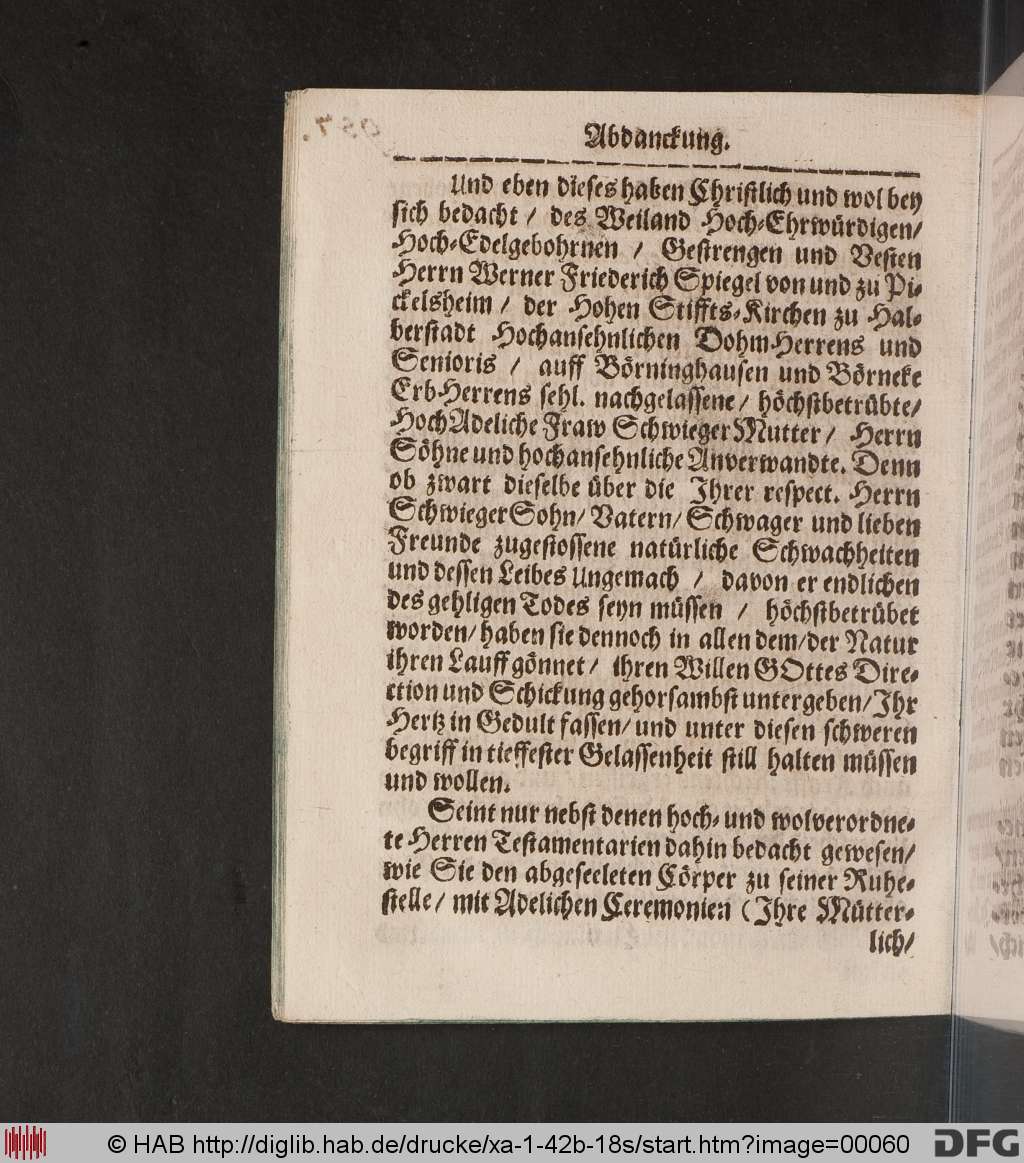 Abdanckung.
Und eben dieses haben Christlich und wol bey
sich bedacht / des Weiland Hoch-Ehrwürdigen/
Hoch-Edelgebohrnen / Gestrengen und Vesten
Herrn Werner Friederich Spiegel von und zu Pi-
ckelsheim / der Hohen Stiffts-Kirchen zu Hal-
berstadt Hochansehnlichen DohmHerrens und
Senioris / auff Börninghausen und Börneke
ErbHerrens sehl. nachgelassene / höchstbetrübte/
HochAdeliche Fraw SchwiegerMutter / Herrn
Söhne und hochansehnliche Anverwandte. Denn
ob zwart dieselbe über die Ihrer respect. Herrn
SchwiegerSohn / Vatern / Schwager und lieben
Freunde zugestossene natürliche Schwachheiten
und dessen Leibes Ungemach / davon er endlichen
des gehligen Todes seyn müssen / höchstbetrübet
worden / haben sie dennoch in allen dem / der Natur
ihren Lauff gönnet / ihren Willen GOttes Dire-
ction und Schickung gehorsambst untergeben / Ihr
Hertz in Gedult fassen / und unter diesen schweren
begriff in tieffester Gelassenheit still halten müssen
und wollen.
Seint nur nebst denen hoch- und wolverordne-
te Herren Testamentarien dahin bedacht gewesen/
wie Sie den abgeseeleten Cörper zu seiner Ruhe-
stelle / mit Adelichen Ceremonien (Ihre Mütter-
lich/
© HAB http://diglib.hab.de/drucke/xa-1-42b-18s/start.htm?image=00060
DFG